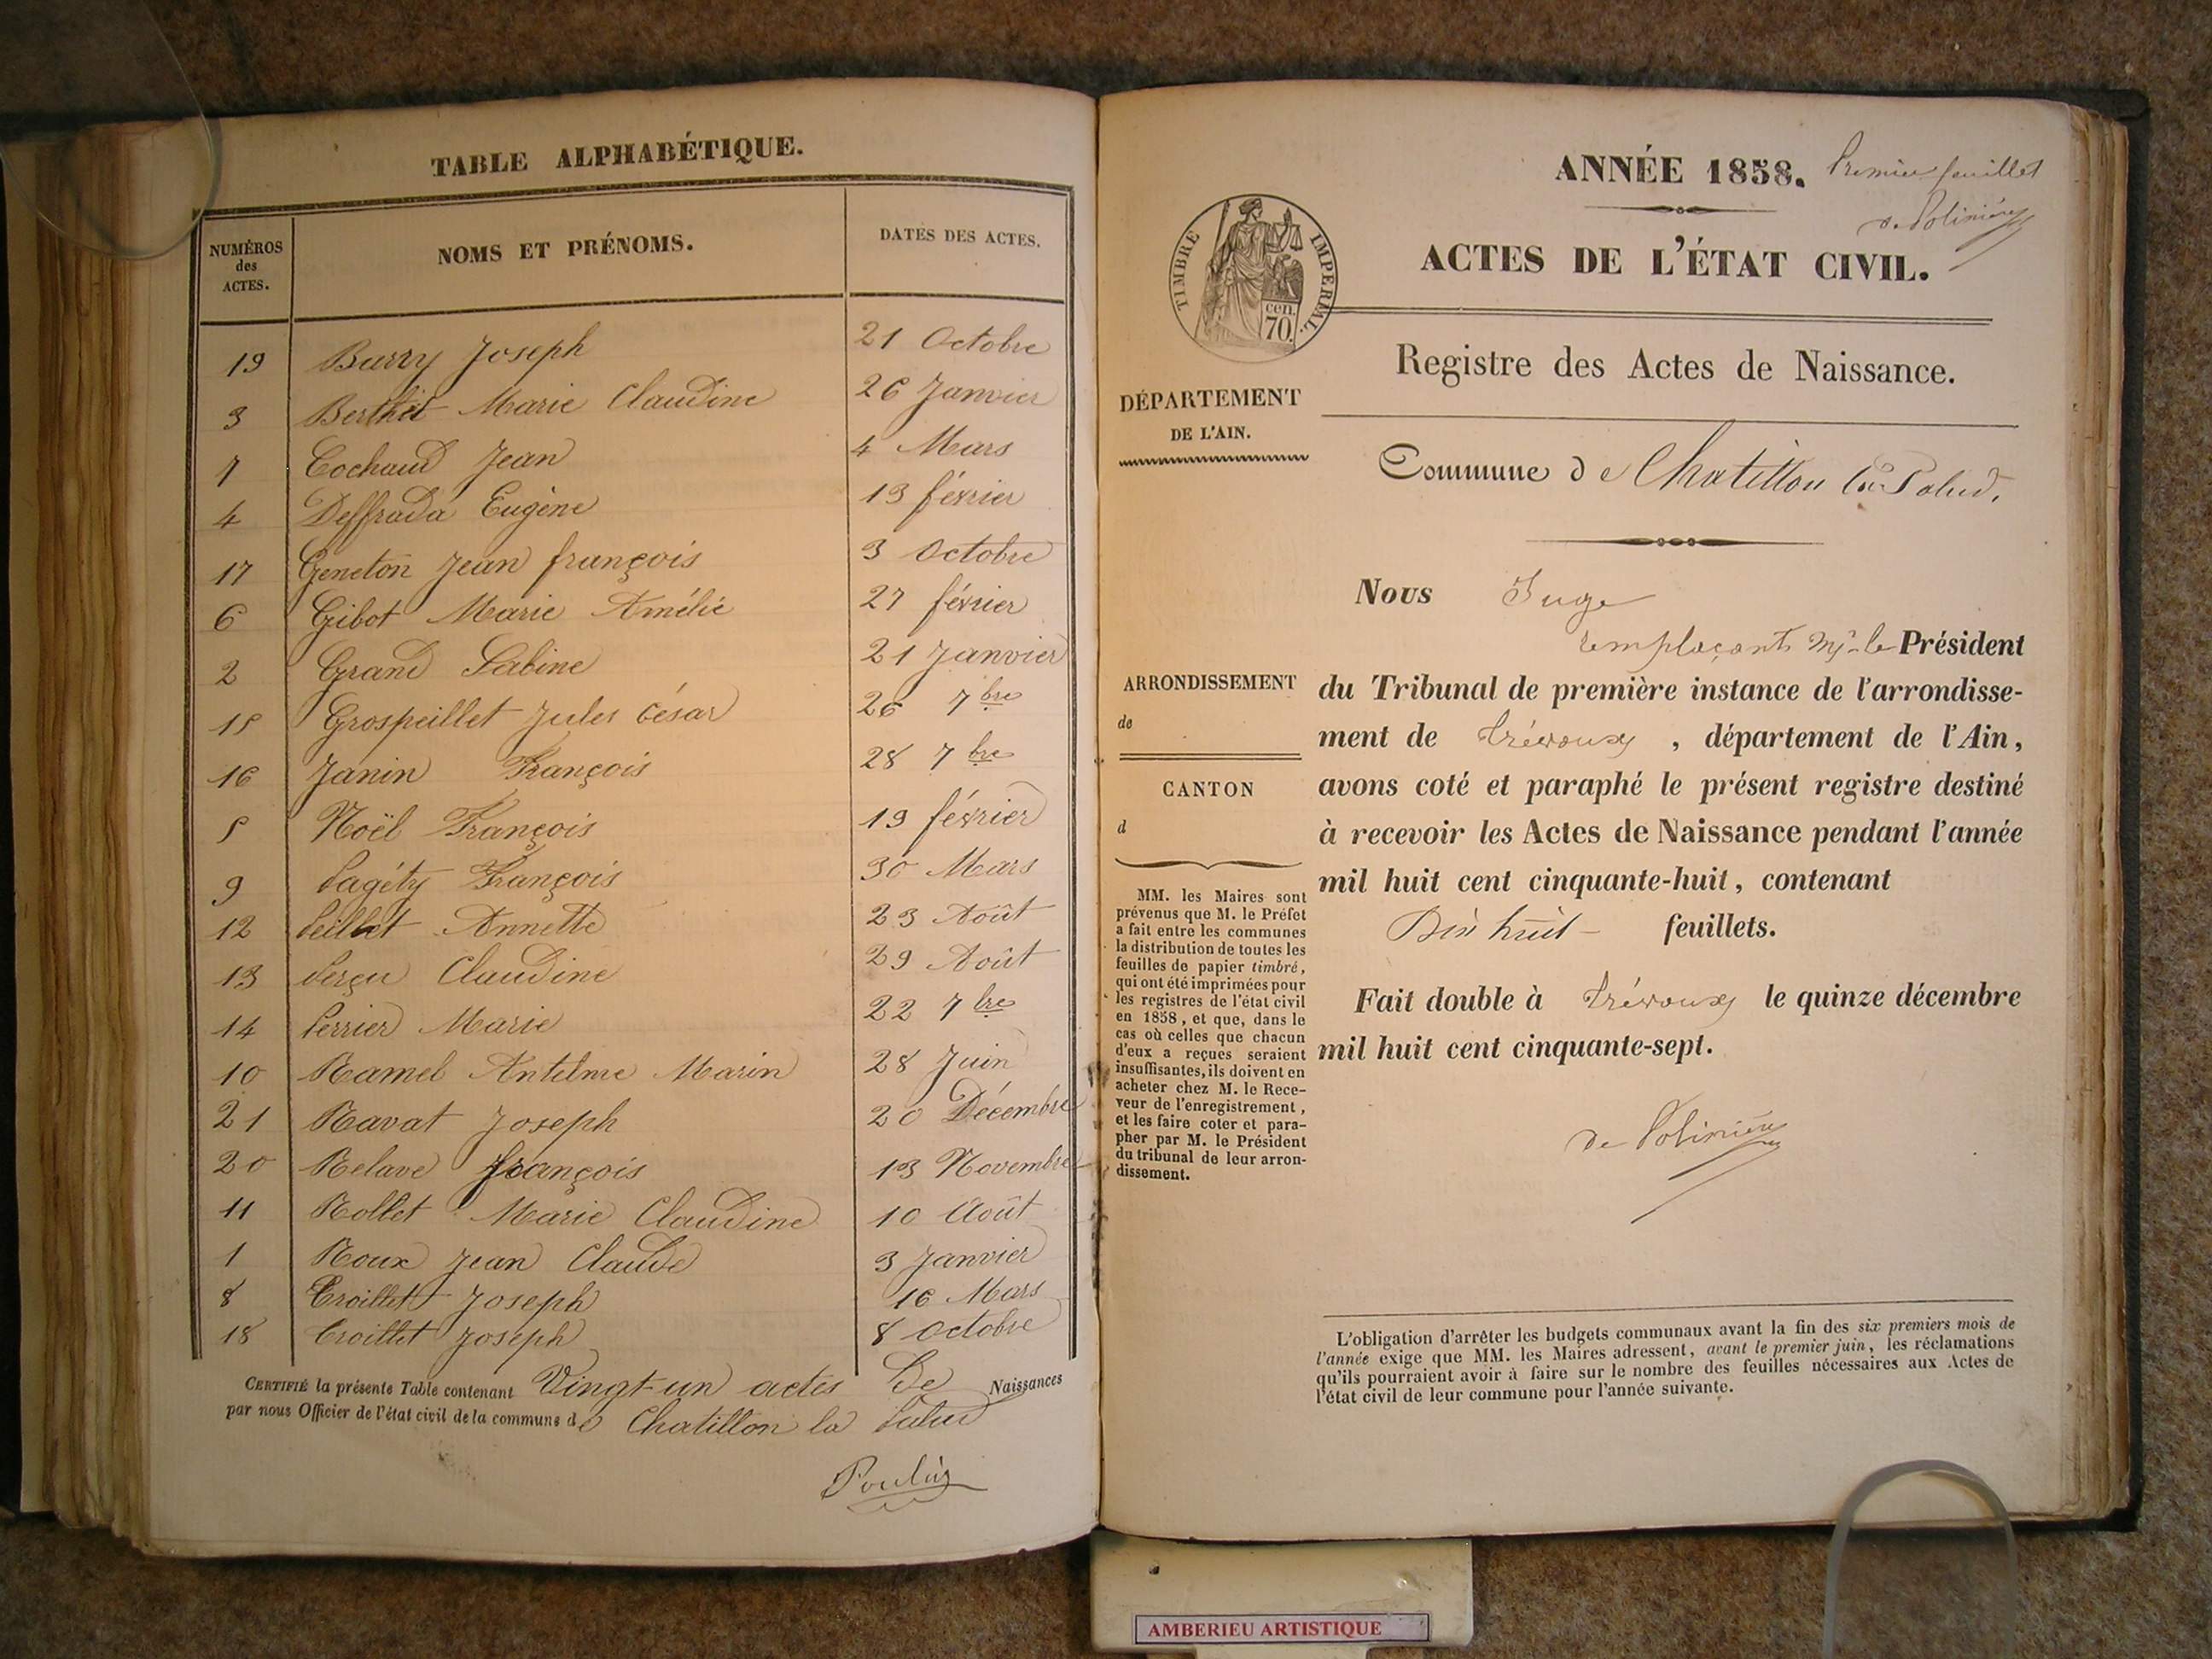 TABLE ALPHABÉTIQUE.
NUMÉROS des ACTES. NOMS ET PRÉNOMS. DATES DES ACTES.
19 Burry Joseph 21 Octobre
3 Berthet Marie Claudine 26 Janvier
7 Cochaud Jean 4 Mars
4 Deffrada Eugène 13 février
17 Geneton Jean françois 3 Octobre
6 Gibot Marie Amélie 27 février
2 Grand Sabine 21 Janvier
15 Grospeillet Jules César 26 7bre
16 Janin François 28 7bre
5 Noël François 19 février
9 Pagéty François 30 Mars
12 Peillet Annette 23 Août
13 Perçu Claudine 29 Août
14 Perrier Marie 22 7bre
10 Ramel Antelme Marin 28 Juin
21 Ravat Joseph 20 Décembre
20 Relave françois 13 Novembre
11 Rollet Marie Claudine 10 Août
1 Roux Jean Claude 3 Janvier
8 Troillet Joseph 16 Mars
18 Troillet Joseph 8 Octobre
CERTIFIÉ la présente Table contenant Vingt-un actes De Naissances
par nous Officier de l'état civil de la commune de Chatillon la Palud
ANNÉE 1858. Premier feuillet
de Polinière
ACTES DE L'ÉTAT CIVIL.
TIMBRE IMPERIAL.
cen.
70.
Registre des Actes de Naissance.
DÉPARTEMENT
DE L'AIN.
Commune de Chatillon la Palud.
Nous Juge
remplaçant Mr le Président
ARRONDISSEMENT
de
CANTON
d
du Tribunal de première instance de l'arrondisse-
ment de Trévoux, département de l'Ain,
avons coté et paraphé le présent registre destiné
à recevoir les Actes de Naissance pendant l'année
mil huit cent cinquante-huit, contenant
Dix huit feuillets.
Fait double à Trévoux le quinze décembre
mil huit cent cinquante-sept.
de Polinière
MM. les Maires sont
prévenus que M. le Préfet
a fait entre les communes
la distribution de toutes les
feuilles de papier timbré,
qui ont été imprimées pour
les registres de l'état civil
en 1858, et que, dans le
cas où celles que chacun
d'eux a reçues seraient
insuffisantes, ils doivent en
acheter chez M. le Rece-
veur de l'enregistrement,
et les faire coter et para-
pher par M. le Président
du tribunal de leur arron-
dissement.
L'obligation d'arrêter les budgets communaux avant la fin des six premiers mois de
l'année exige que MM. les Maires adressent, avant le premier juin, les réclamations
qu'ils pourraient avoir à faire sur le nombre des feuilles nécessaires aux Actes de
l'état civil de leur commune pour l'année suivante.
AMBERIEU ARTISTIQUE